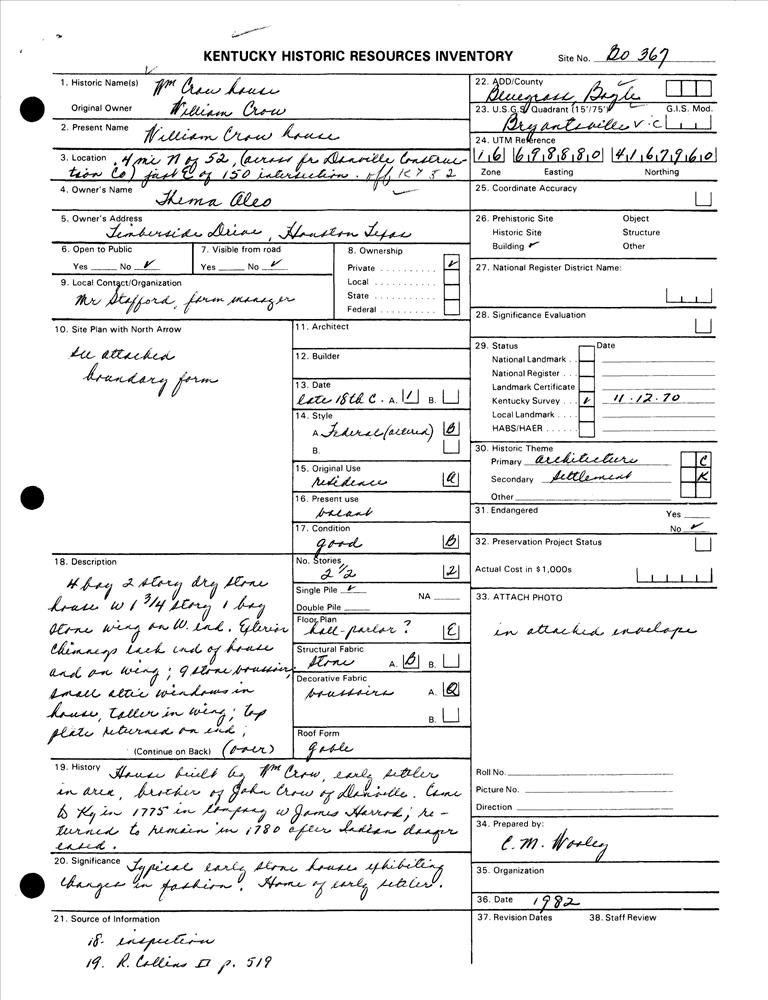 KENTUCKY HISTORIC RESOURCES INVENTORY
Site No. Bo 367
1. Historic Name(s) Wm Crow house
Original Owner William Crow
2. Present Name William Crow house
3. Location .4 mi N of 52, (across fr Danville Construc-
tion Co) just E of 150 intersection. off KY 52
4. Owner's Name Thema Aleo
5. Owner's Address
Timberside Drive, Houston Texas
6. Open to Public
Yes No ✓
7. Visible from road
Yes No ✓
8. Ownership
Private ✓
Local
State
Federal
9. Local Contact/Organization
Mr Stafford, farm manager
10. Site Plan with North Arrow
see attached
boundary form
11. Architect
12. Builder
13. Date
late 18th C. A. 1 B.
14. Style
A. Federal (altered) B
B.
15. Original Use
residence A
16. Present use
vacant
17. Condition
good B
No. Stories
2 1/2 2
Single Pile ✓ NA
Double Pile
Floor Plan
hall-parlor? E
Structural Fabric
stone A. B B.
Decorative Fabric
voussoirs A. Q
B.
Roof Form
gable
18. Description
4 bay 2 story dry stone
house w 1 3/4 story 1 bay
stone wing on W. end. Exterior
chimneys each end of house
and on wing; 9 stone voussoirs;
small attic windows in
house, taller in wing; top
plate returned on end;
(Continue on Back) (over)
19. History House built by Wm Crow, early settler
in area, brother of John Crow of Danville. Came
to Ky in 1775 in company w James Harrod; re-
turned to remain in 1780 after Indian danger
eased.
20. Significance Typical early stone house exhibiting
changes in fashion. Home of early settler.
21. Source of Information
18. inspection
19. R. Collins II p. 519
22. ADD/County
Bluegrass Boyle
23. U.S.G.S. Quadrant (15'/75') G.I.S. Mod.
Bryantsville V-C
24. UTM Reference
16 698880 4167960
Zone Easting Northing
25. Coordinate Accuracy
26. Prehistoric Site Object
Historic Site Structure
Building ✓ Other
27. National Register District Name:
28. Significance Evaluation
29. Status Date
National Landmark
National Register
Landmark Certificate
Kentucky Survey ✓ 11.12.70
Local Landmark
HABS/HAER
30. Historic Theme
Primary architecture C
Secondary settlement K
Other
31. Endangered Yes
No ✓
32. Preservation Project Status
Actual Cost in $1,000s
33. ATTACH PHOTO
in attached envelope
Roll No.
Picture No.
Direction
34. Prepared by:
C. M. Wooley
35. Organization
36. Date 1982
37. Revision Dates 38. Staff Review